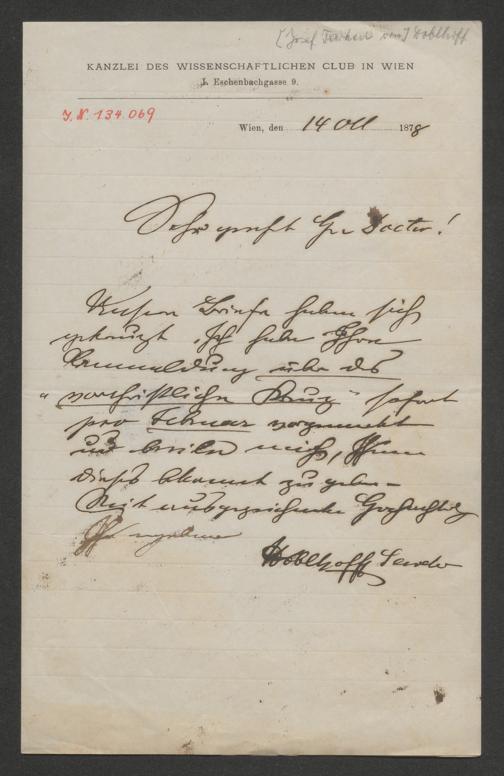 [Josef Freiherr von] Doblhoff
KANZLEI DES WISSENSCHAFTLICHEN CLUB IN WIEN
I. Eschenbachgasse 9.
J.N. 134.069
Wien, den 14 Oct 1878
Sehr geehrter Herr Doctor!
Unsere Briefe haben sich
gekreuzt. Ich habe Ihre
Anmeldung über das
"vorchristliche Kreuz" sofort
pro Februar vorgemerkt
und beeile mich, Ihnen
dieses bekannt zu geben –
Mit ausgezeichneter Hochachtung
Ihr ergebener
Doblhoff